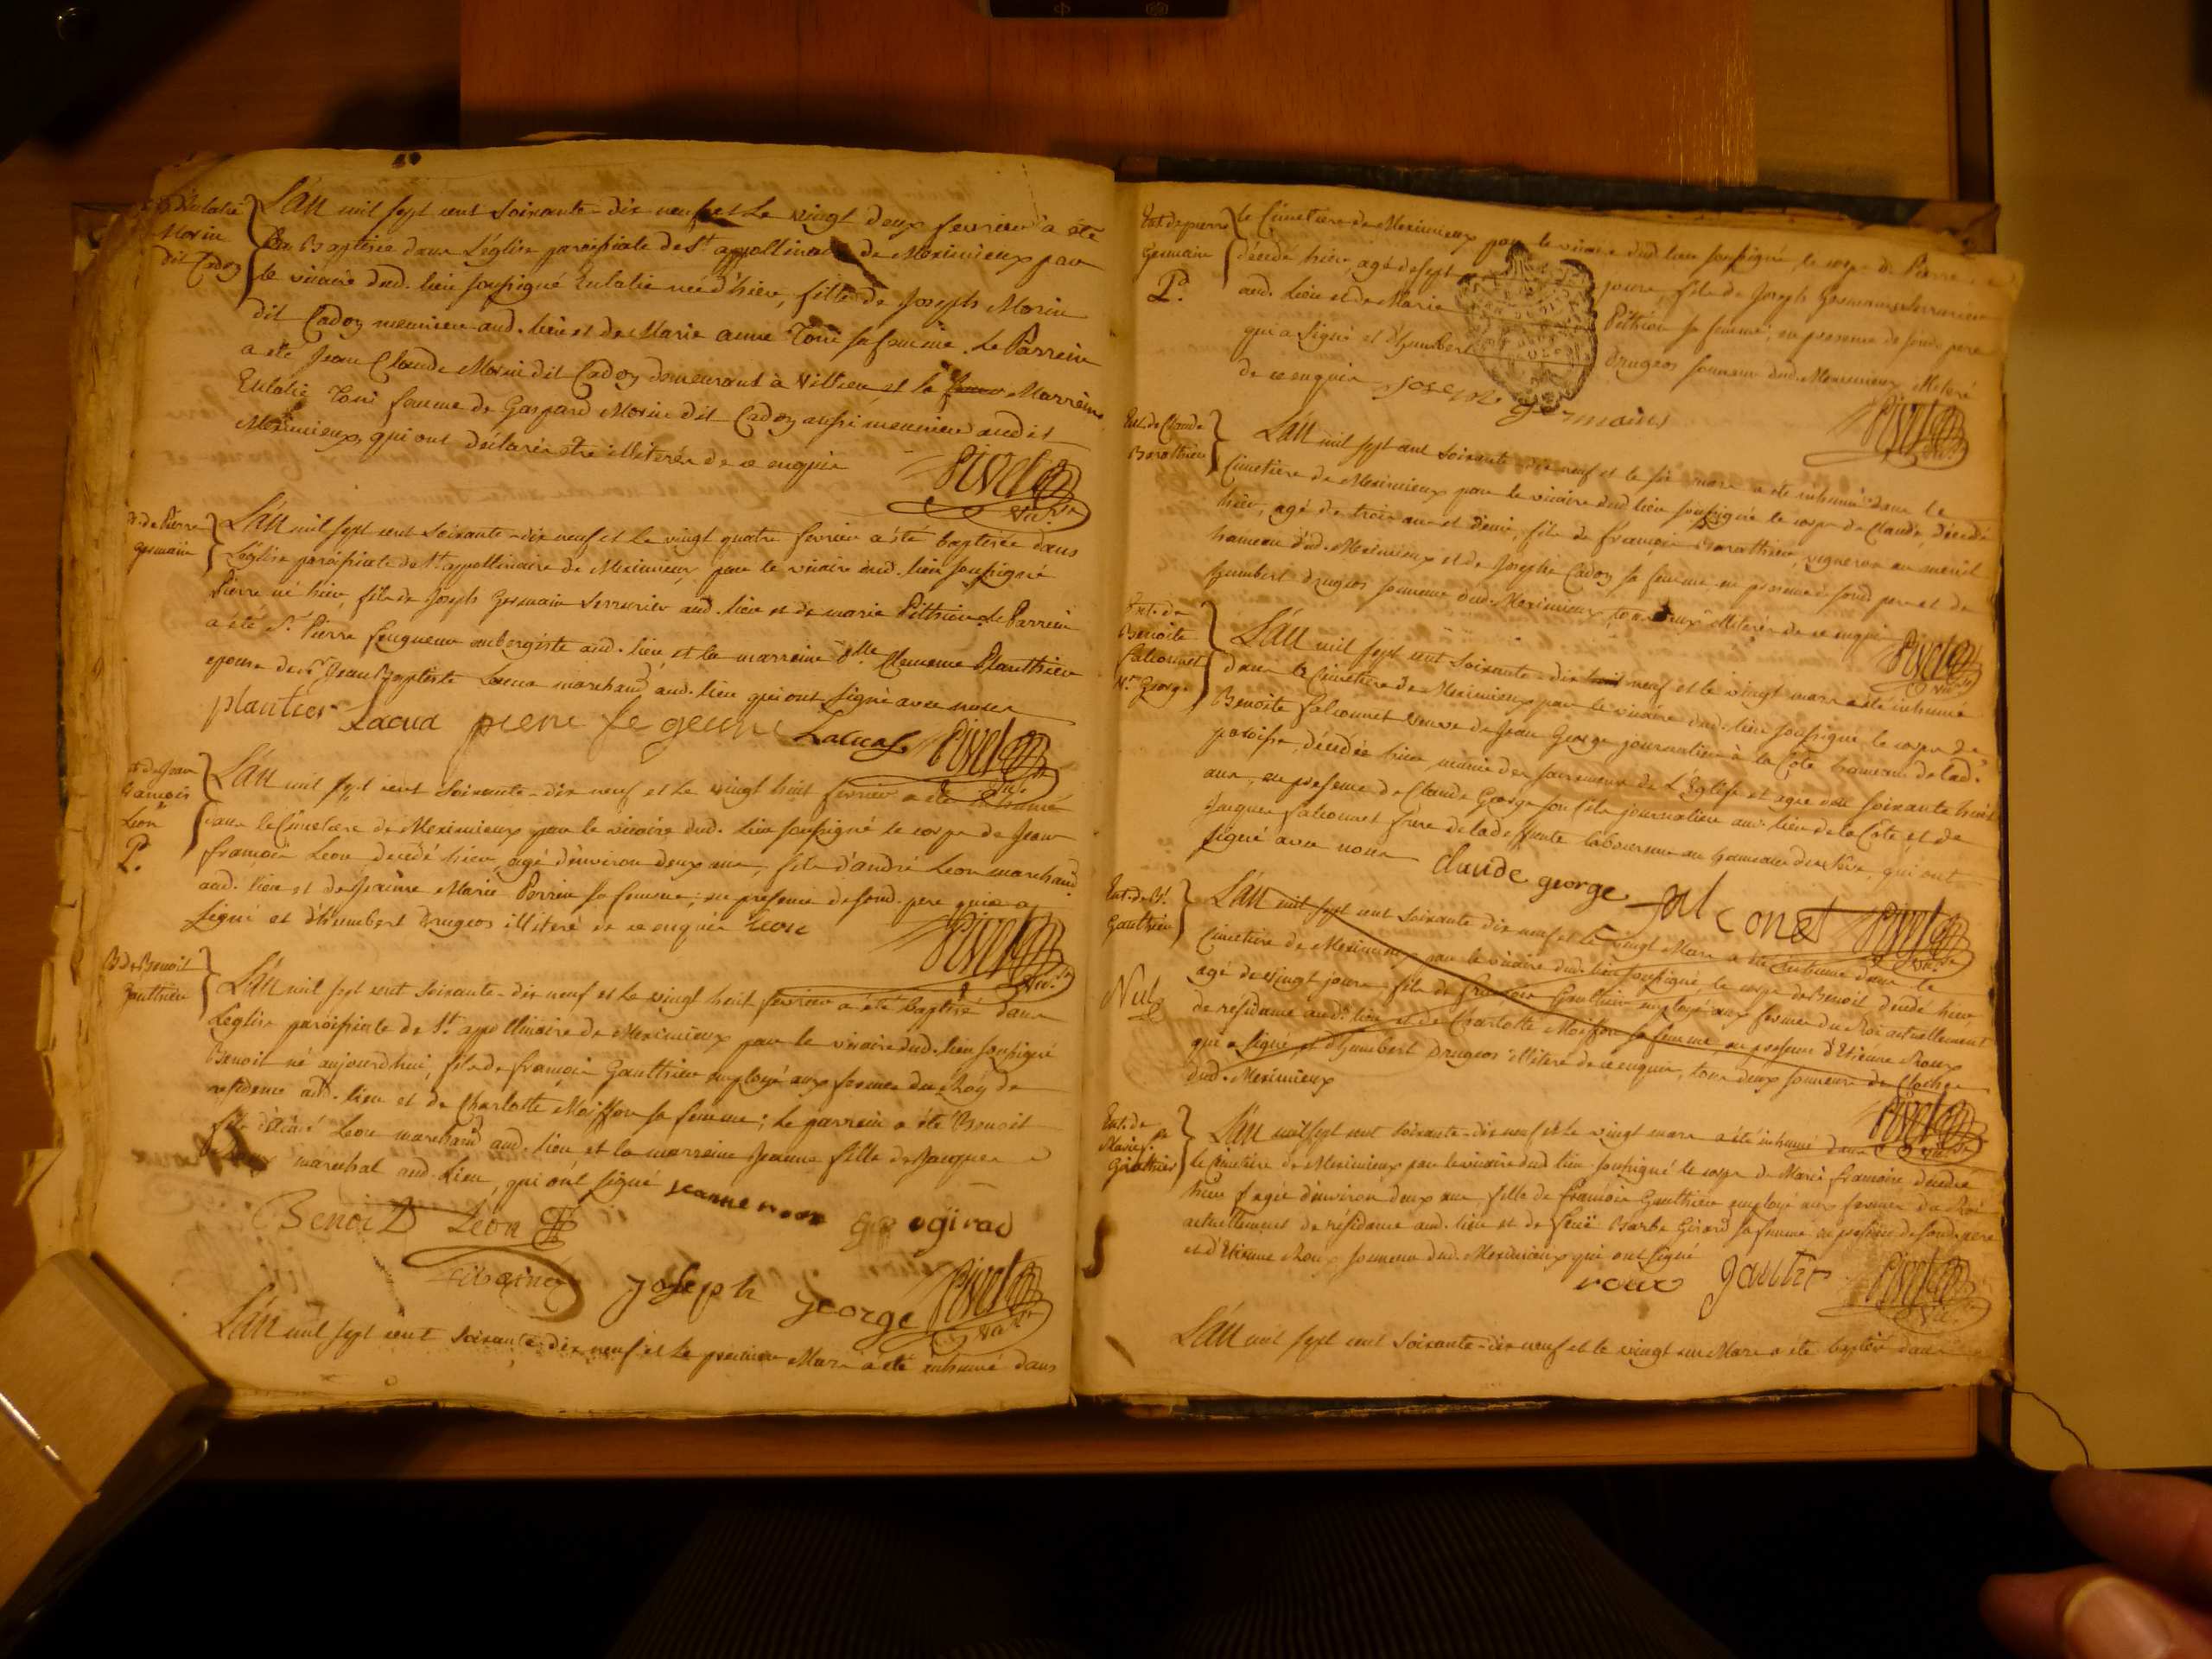 B. d'Eulalie
Morin
dit Cadoz
L'an mil sept cent soixante-dix neuf et le vingt deux fevrier a été
Baptisée dans L'église paroissiale de St appollinaire de Meximieux par
le vicaire dud. lieu soussigné Eulalie née d'hier, fille de Joseph Morin
dit Cadoz meunier aud. lieu et de Marie anne Toni sa femme. Le Parrein
a été Jean Claude Morin dit Cadoz demeurant à Villieu et la Marreine
Eulalie Toni femme de Gaspard Morin dit Cadoz aussi meunier audit
Meximieux, qui ont déclaré être illiterés de ce enquis
Pivet Vic.
B. de Pierre
germain
L'an mil sept cent soixante-dix neuf et le vingt quatre fevrier a été baptisée dans
L'église paroissiale de St appollinaire de Meximieux par le vicaire dud. lieu soussigné
Pierre né hier, fils de Joseph Germain Serrurier aud. lieu et de marie Pithion. Le Parrein
a été Sr. Pierre aubergiste aud. lieu et la marreine Dlle
epouse de Sr Jean Baptiste Lacua marchand aud. lieu qui ont signé avec nous
plantier Lacua piere Lacua Pivet Vic.
Ent. de Jean
francois
Léon
P.
L'an mil sept cent soixante-dix neuf et le vingt huit fevrier a été inhumé
dans le Cimetiere de Meximieux par le vicaire dud. lieu soussigné le corps de Jean
francois Leon decedé hier, agé d'environ deux ans, fils d'andré Leon marchand
aud. lieu et de Jeanne Marie Perrin sa femme; en presence de sond. pere qui a
signé et d'humbert Drugeos illiteré de ce enquis Leon
Pivet Vic.
B. de Benoit
Gauthier
L'an mil sept cent soixante-dix neuf et le vingt huit fevrier a été baptisé dans
L'eglise paroissiale de St. appollinaire de Meximieux par le vicaire dud. lieu soussigné
Benoit né aujourd'hui, fils de françois Gauthier employé aux fermes du Roy de
residence aud. lieu et de Charlotte Moisson sa femme; le parrein a été Benoit
fils d'andré Leon marchand aud. lieu et la marreine Jeanne fille de Jacques
marechal aud. Lieu, qui ont signé jeanne roux ogirad
Benoit Léon
joseph george Pivet Vic.
L'an mil sept cent soixante-dix neuf et le premier Mars a été inhumé dans
Ent. de pierre
Germain
P.
le Cimetiere de Meximieux par le vicaire dud. lieu soussigné, le corps de Pierre
décédé hier, agé de sept jours, fils de Joseph Germain Serrurier
aud. lieu et de Marie Pithion sa femme; en presence de sond. pere
qui a Signé et d'humbert Drugeos sonneur dud. Meximieux illiteré
de ce enquis joseph germain
Pivet Vic.
Ent. de Claude
Barathieu
L'an mil sept cent soixante-dix neuf et le six mars a été inhumé dans le
Cimetiere de Meximieux par le vicaire dud. lieu soussigné le corps de Claude, décedé
hier, agé de trois ans et demi, fils de françois Barathieu, vigneron au
hameau dud. Meximieux et de Josephe Cadoz sa femme, en presence de sond. pere et de
humbert Drugeos sonneur dud. Meximieux, tous deux illiterés de ce enquis
Pivet Vic.
Ent. de
Benoite
falconnet
Ve. George
L'an mil sept cent soixante-dix neuf et le vingt mars a été inhumé
dans le Cimetiere de Meximieux par le vicaire dud. lieu soussigné le corps de
Benoite falconnet veuve de Jean George journalier à la Cote hameau de lad.
paroisse, décédée hier, munie des sacremens de L'Eglise et agée de soixante huit
ans, en presence de Claude George son fils journalier aud. lieu de la Cote et de
Jacques falconnet frere de la deffunte laboureur au hameau qui ont
signé avec nous Claude george falconet Pivet Vic.
Ent. de Bt.
Gauthier
Nul
L'an mil sept cent soixante dix neuf et le vingt Mars a été inhumé dans le
Cimetiere de Meximieux par le vicaire dud. lieu soussigné le corps de Benoit décédé hier
agé de vingt jours fils de françois Gauthier employé aux fermes du Roi actuellement
de résidence aud. lieu et de Charlotte Moisson sa femme, en presence d'Etienne Roux
qui a signé et d'humbert Drugeos illiteré de ce enquis, tous deux sonneurs de Cloches
dud. Meximieux
Pivet Vic.
Ent. de
Marie fse
Gauthier
L'an mil sept cent soixante-dix neuf et le vingt mars a été inhumé dans
le Cimetiere de Meximieux par le vicaire dud lieu soussigné le corps de Marie francoise décédée
hier agée d'environ deux ans fille de francois Gauthier employé aux fermes du Roi
actuellement de résidence aud. lieu et de feuë Barbe Girard sa femme en presence de sond. pere
et d'Etienne Roux sonneur dud. Meximieux qui ont signé
roux gautier Pivet Vic.
L'an mil sept cent soixante-dix neuf et le vingt un Mars a été baptisé dans